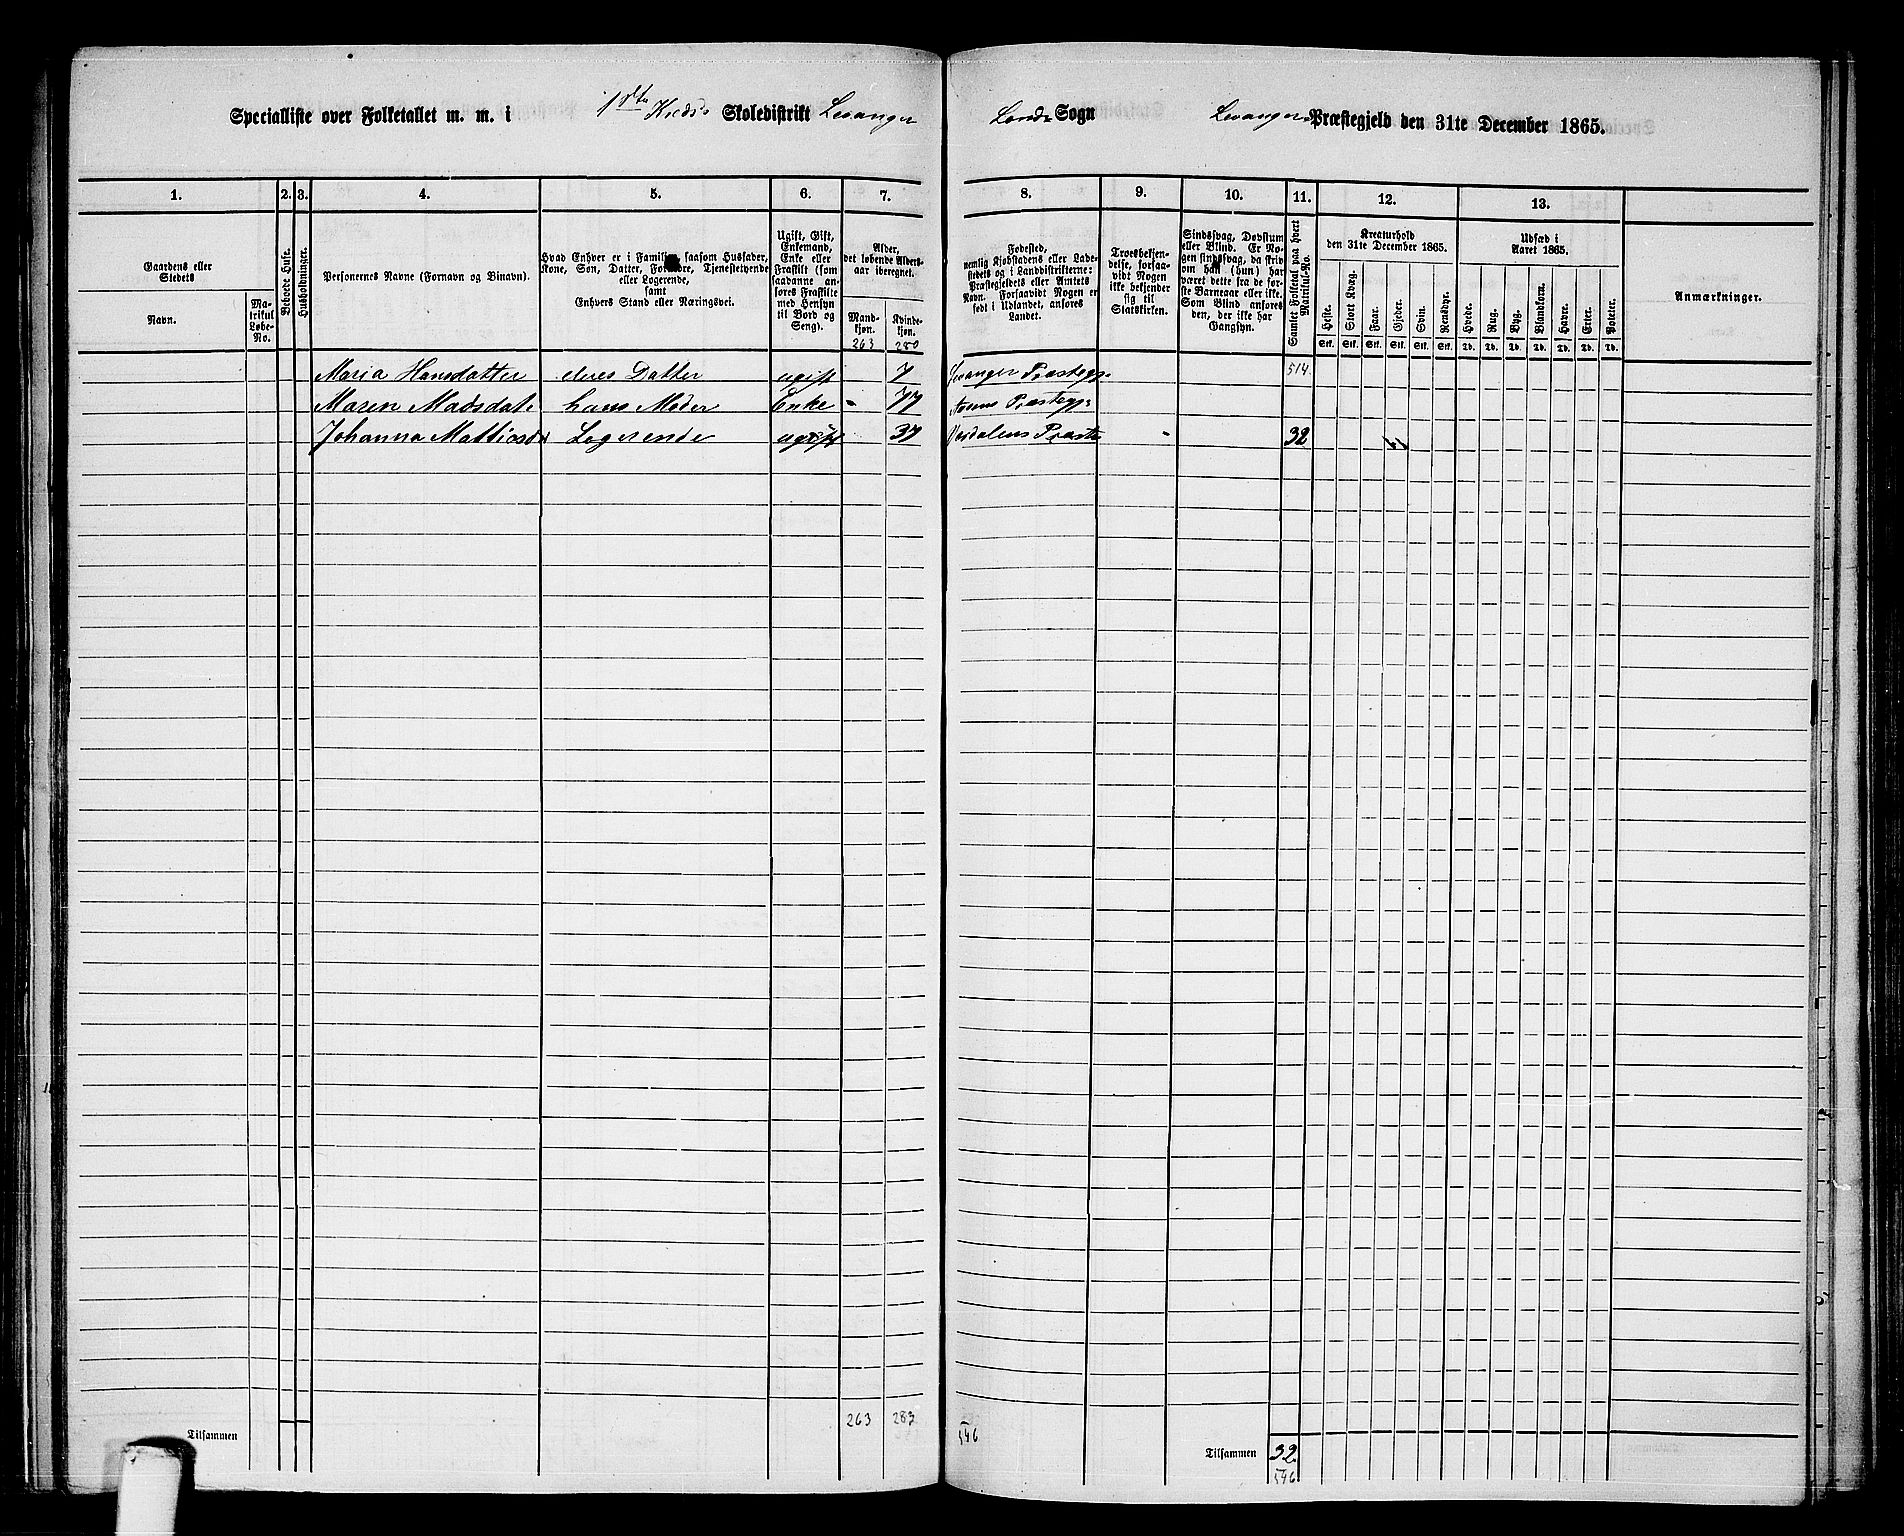 Specialliste over Folketallet m. m. i 1ste Kreds Skoledistrikt Levanger Lands Sogn Levanger Præstegjeld den 31te December 1865.
1. 2. 3. 4. 5. 6. 7. 8. 9. 10. 11. 12. 13.
Gaardens eller Stedets
Navn.
Matrikul Løbe-No.
Beboede Huse.
Husholdninger.
Personernes Navne (Fornavn og Binavn).
Hvad Enhver er i Familien, saasom Husfader,
Kone, Søn, Datter, Forældre, Tjenestetyende
eller Logerende,
samt
Enhvers Stand eller Næringsvei.
Ugift, Gift,
Enkemand,
Enke eller
Fraskilt (som
saadanne anføres
Fraskilte
med Hensyn
til Bord og
Seng).
Alder,
det løbende Aldersaar
iberegnet.
Mandkjøn.
Kvindekjøn.
263 280
Fødested,
nemlig Kjøbstadens eller Ladestedets
og i Landdistrikterne:
Præstegjeldets eller Amtets
Navn. Forsaavidt Nogen er
født i Udlandet, anføres
Landet.
Troesbekjendelse,
forsaavidt
Nogen
ikke bekjender
sig til
Statskirken.
Sindssvag, Døvstum
eller Blind. Er Nogen
sindssvag, da skrives
om han (hun) har
været dette fra de første
Barneaar eller ikke.
Som Blind anføres
den, der ikke har
Gangsyn.
Samlet Folketal paa hvert Matrikul-No.
Kreaturhold
den 31te December 1865.
Heste. Stort Kvæg. Faar. Gjeder. Svin. Rensdyr.
Stk. Stk. Stk. Stk. Stk. Stk.
Udsæd i
Aaret 1865.
Hvede. Rug. Byg. Blandkorn. Havre. Erter. Poteter.
Td. Td. Td. Td. Td. Td. Td.
Anmærkninger.
Maria Hansdatter deres Datter ugift 7 Levanger Præstegj: 514
Maren Madsdat. hans Moder Enke - 77 Præstegj:
Johanna Mattiasd Logerende ugift 37 Værdalens Præste - 32
263 283 546
Tilsammen
Tilsammen 32
546